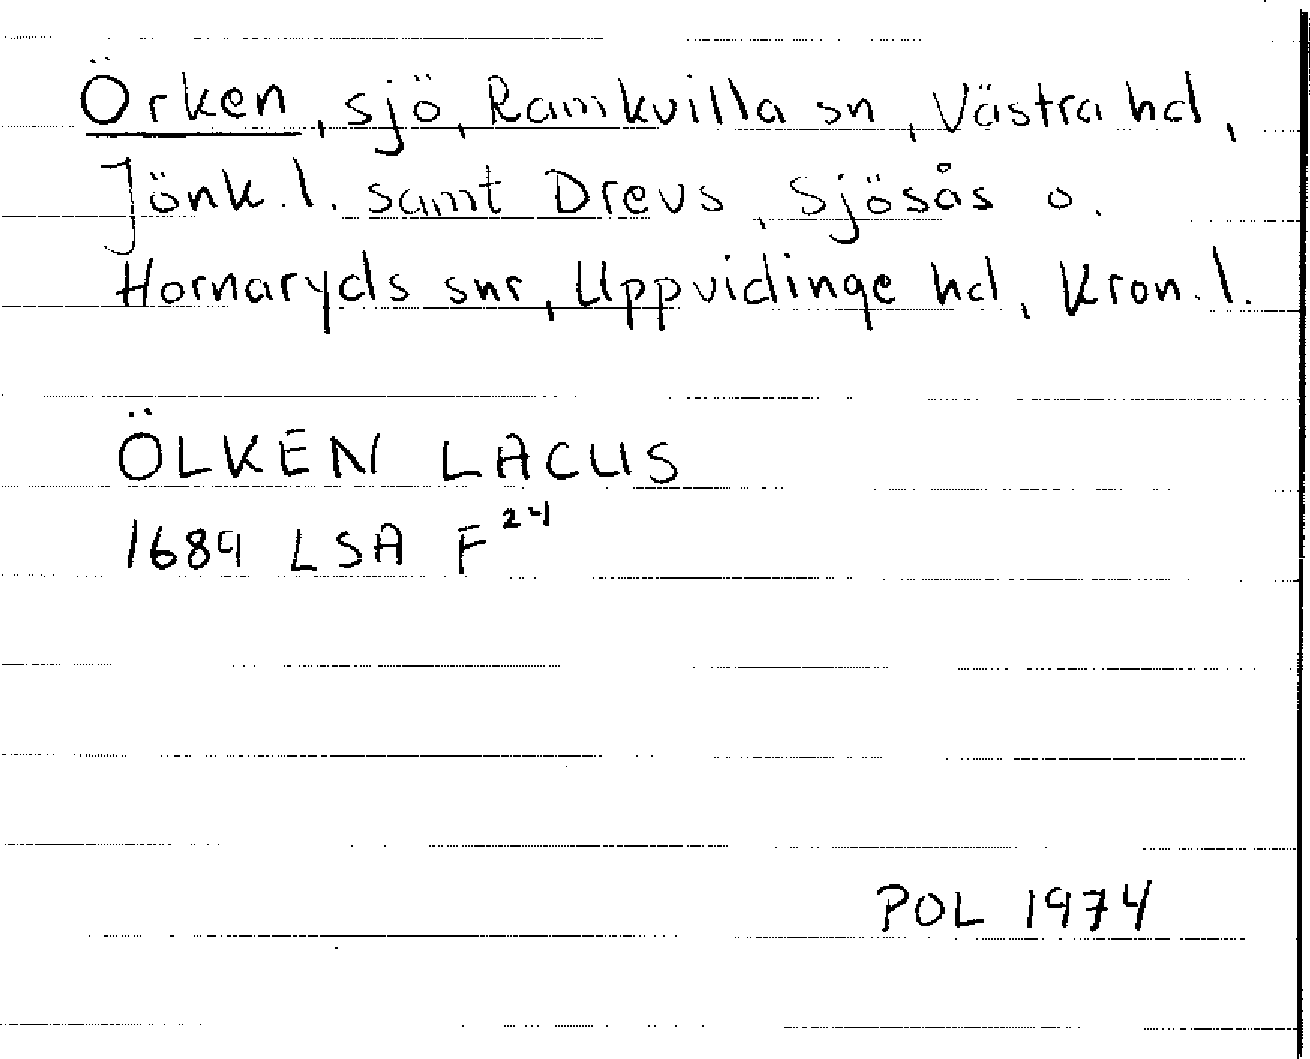 Örken, sjö, Ramkvilla sn, Västra hd,
Jönk.l. samt Drevs, Sjösås o.
Hornaryds snr, Uppvidinge hd, Kron.l.
ÖLKEN LACUS
1689 LSA F²⁴
POL 1974